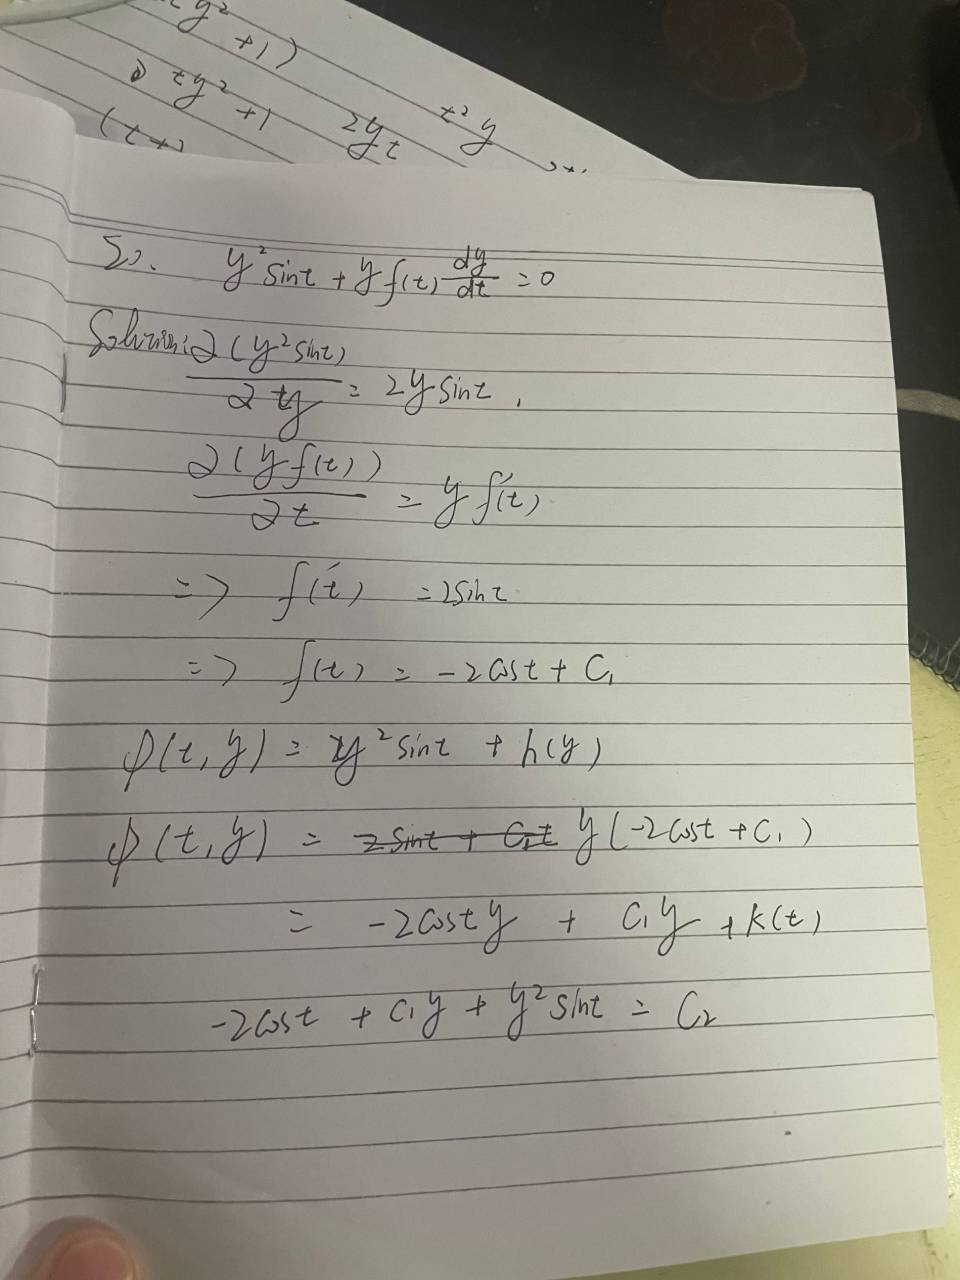 y² +1)
ty² +1 2yt t²y
(t+2
y² sint + y f(t) dy/dt = 0
Solution: ∂(y² sint)/∂y = 2y sint,
∂(y f(t))/∂t = y f'(t)
=> f'(t) = 2sint
=> f(t) = -2cost + C₁
φ(t,y) = y² sint + h(y)
φ(t,y) = 2sint + C₁t y(-2cost + C₁)
= -2cost y + C₁y + k(t)
-2cost + C₁y + y² sint = C₂